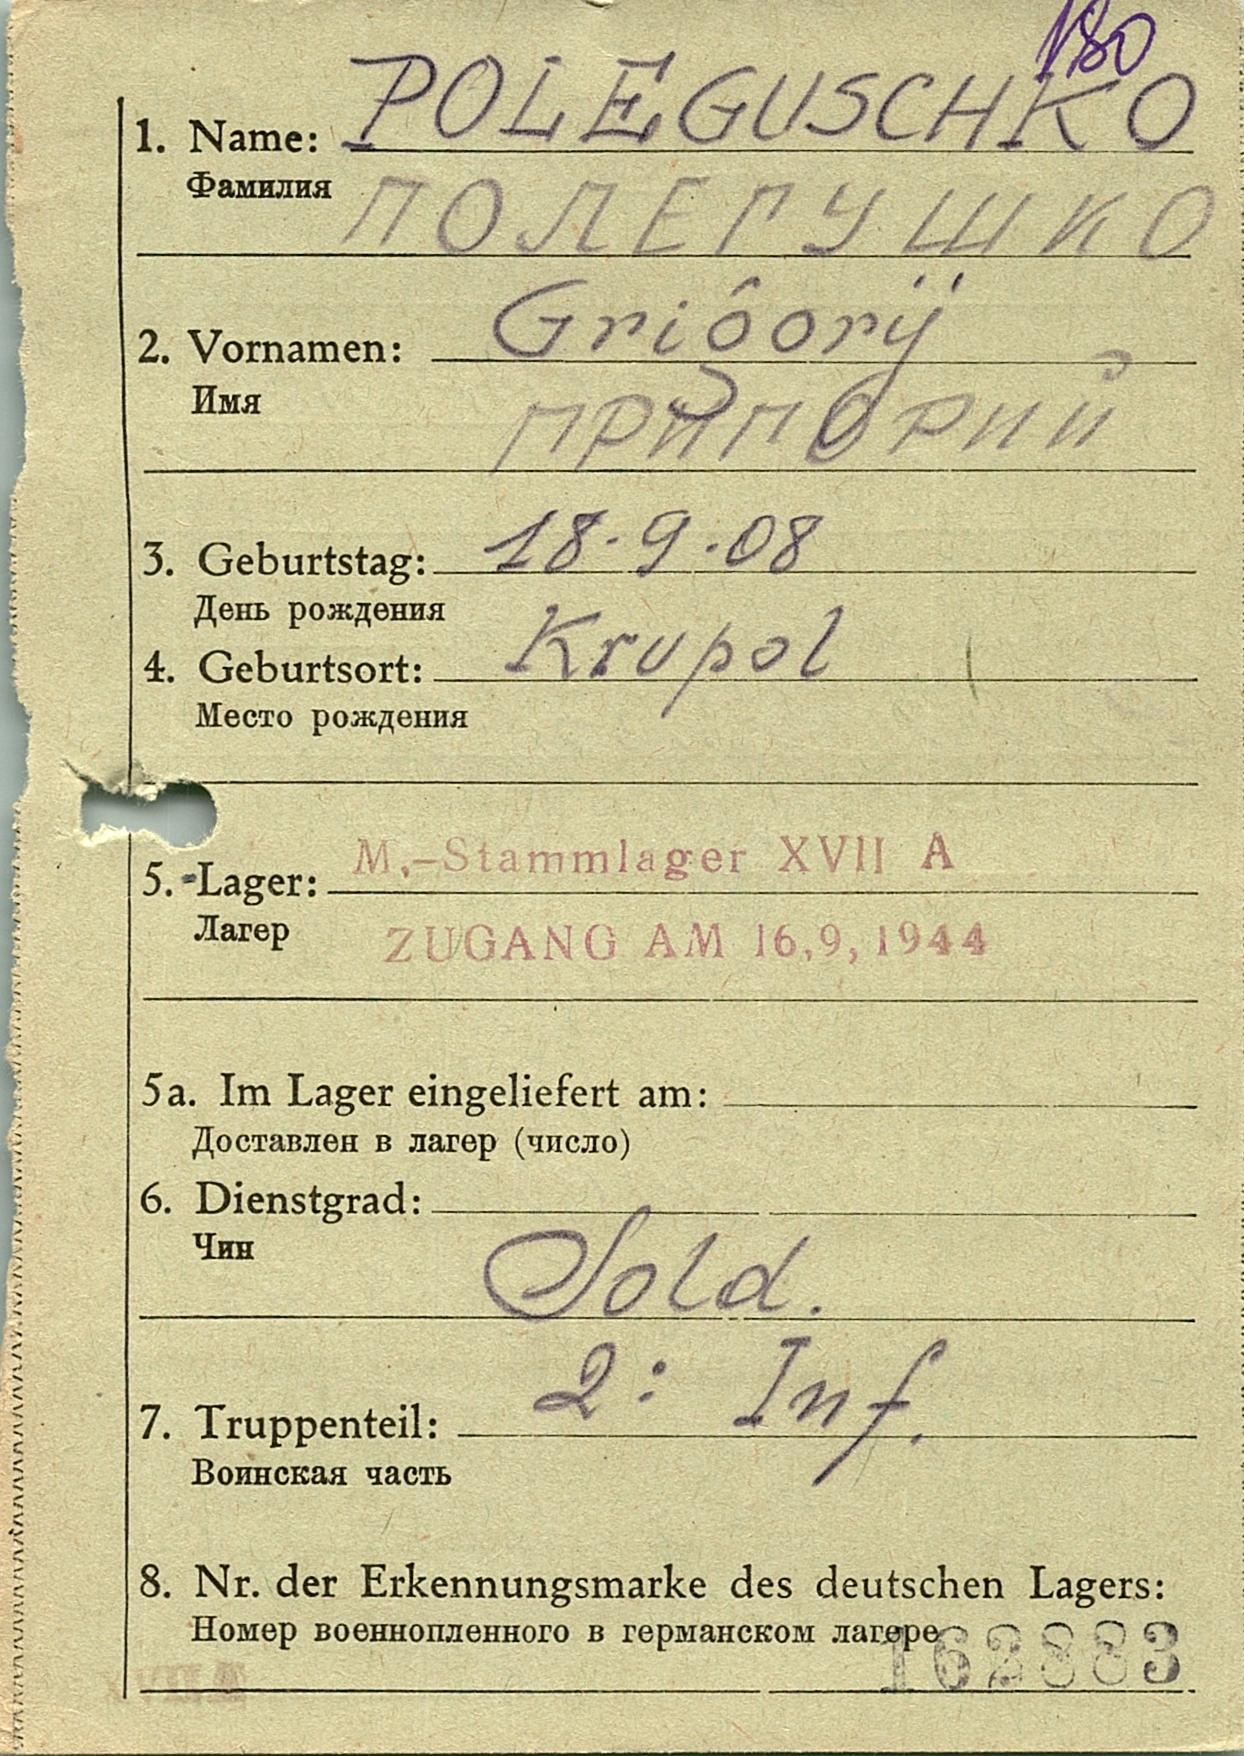 180
1. Name: POLEGUSCHKO
Фамилия ПОЛЕГУШКО
2. Vornamen: Grióorÿ
Имя
3. Geburtstag: 18.9.08
День рождения
4. Geburtsort: Krupol
Место рождения
M.-Stammlager XVII A
5. Lager:
Лагер ZUGANG AM 16,9,1944
5a. Im Lager eingeliefert am:
Доставлен в лагер (число)
6. Dienstgrad:
Чин
Sold.
7. Truppenteil: 2: Inf.
Воинская часть
8. Nr. der Erkennungsmarke des deutschen Lagers:
Номер военнопленного в германском лагере 162883